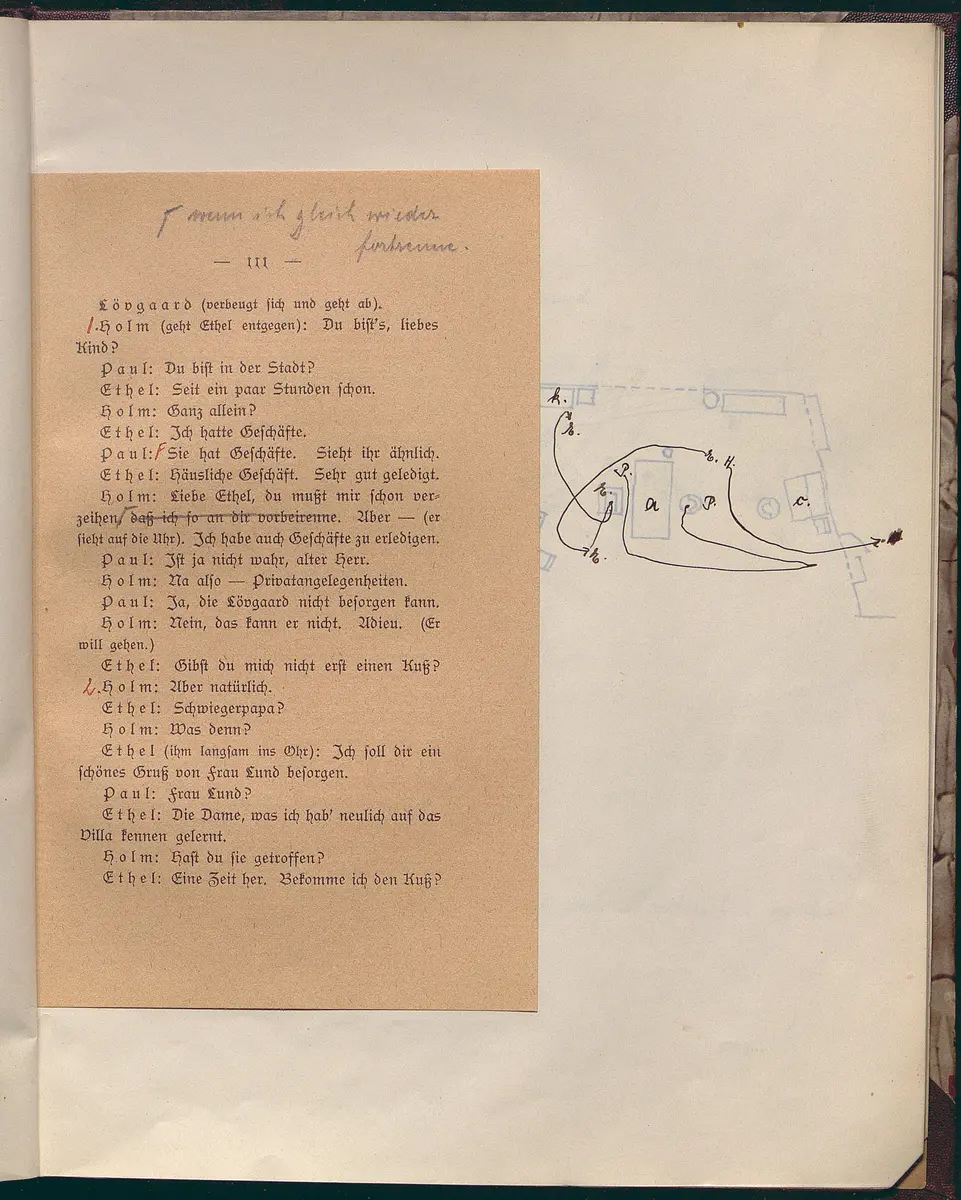 wenn ich gleich wieder
fortrenne.
— 111 —
Lövgaard (verbeugt sich und geht ab).
1. Holm (geht Ethel entgegen): Du bist's, liebes
Kind?
Paul: Du bist in der Stadt?
Ethel: Seit ein paar Stunden schon.
Holm: Ganz allein?
Ethel: Ich hatte Geschäfte.
Paul: Sie hat Geschäfte. Sieht ihr ähnlich.
Ethel: Häusliche Geschäft. Sehr gut geledigt.
Holm: Liebe Ethel, du mußt mir schon ver-
zeihen, daß ich so an dir vorbeirenne. Aber — (er
sieht auf die Uhr). Ich habe auch Geschäfte zu erledigen.
Paul: Ist ja nicht wahr, alter Herr.
Holm: Na also — Privatangelegenheiten.
Paul: Ja, die Lövgaard nicht besorgen kann.
Holm: Nein, das kann er nicht. Adieu. (Er
will gehen.)
Ethel: Gibst du mich nicht erst einen Kuß?
2. Holm: Aber natürlich.
Ethel: Schwiegerpapa?
Holm: Was denn?
Ethel (ihm langsam ins Ohr): Ich soll dir ein
schönes Gruß von Frau Lund besorgen.
Paul: Frau Lund?
Ethel: Die Dame, was ich hab' neulich auf das
Villa kennen gelernt.
Holm: Hast du sie getroffen?
Ethel: Eine Zeit her. Bekomme ich den Kuß?
h.
E.
E. H.
P.
E.
a
P.
c.
E.